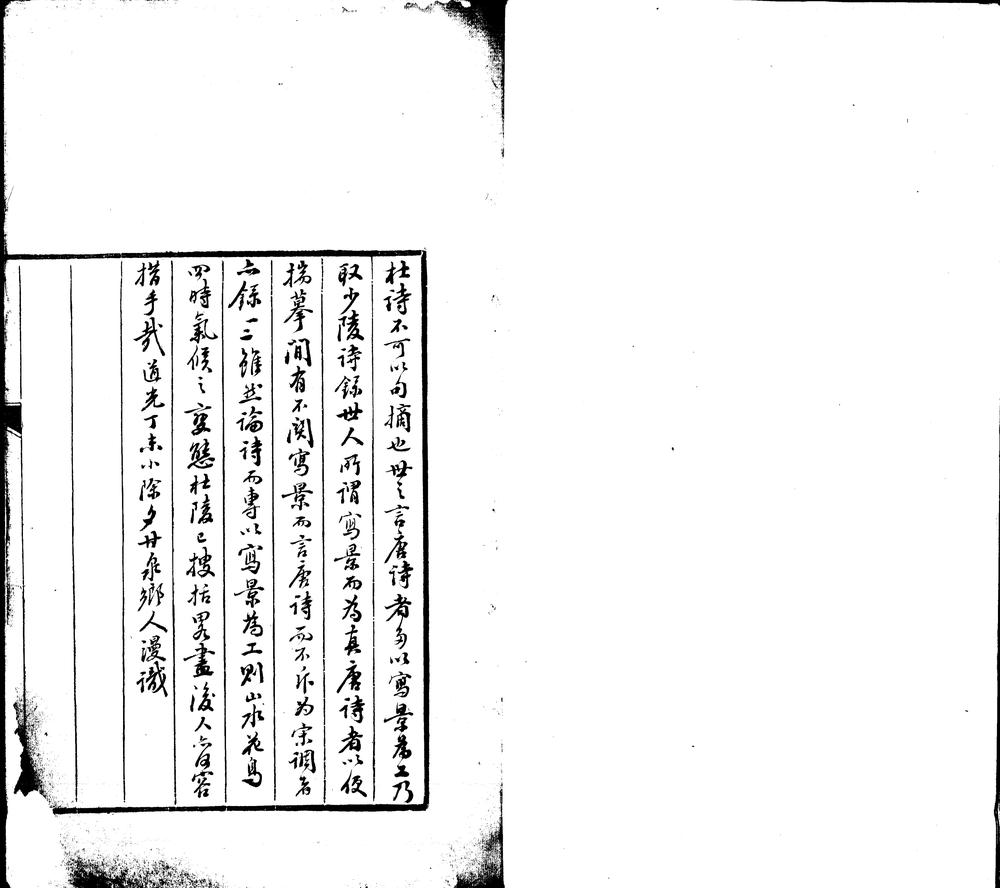 杜詩不可以句摘也世之言唐詩者多以寫景為工乃
取少陵詩錄世人所謂寫景而為真唐詩者以便
揣摹間有不関寫景而言唐詩而不斥為宋調者
亦錄一二雖然論詩而專以寫景為工則山水花鳥
四時氣候之變態杜陵已搜括畧盡後人亦何容
措手哉道光丁未小除夕甘泉鄉人漫識